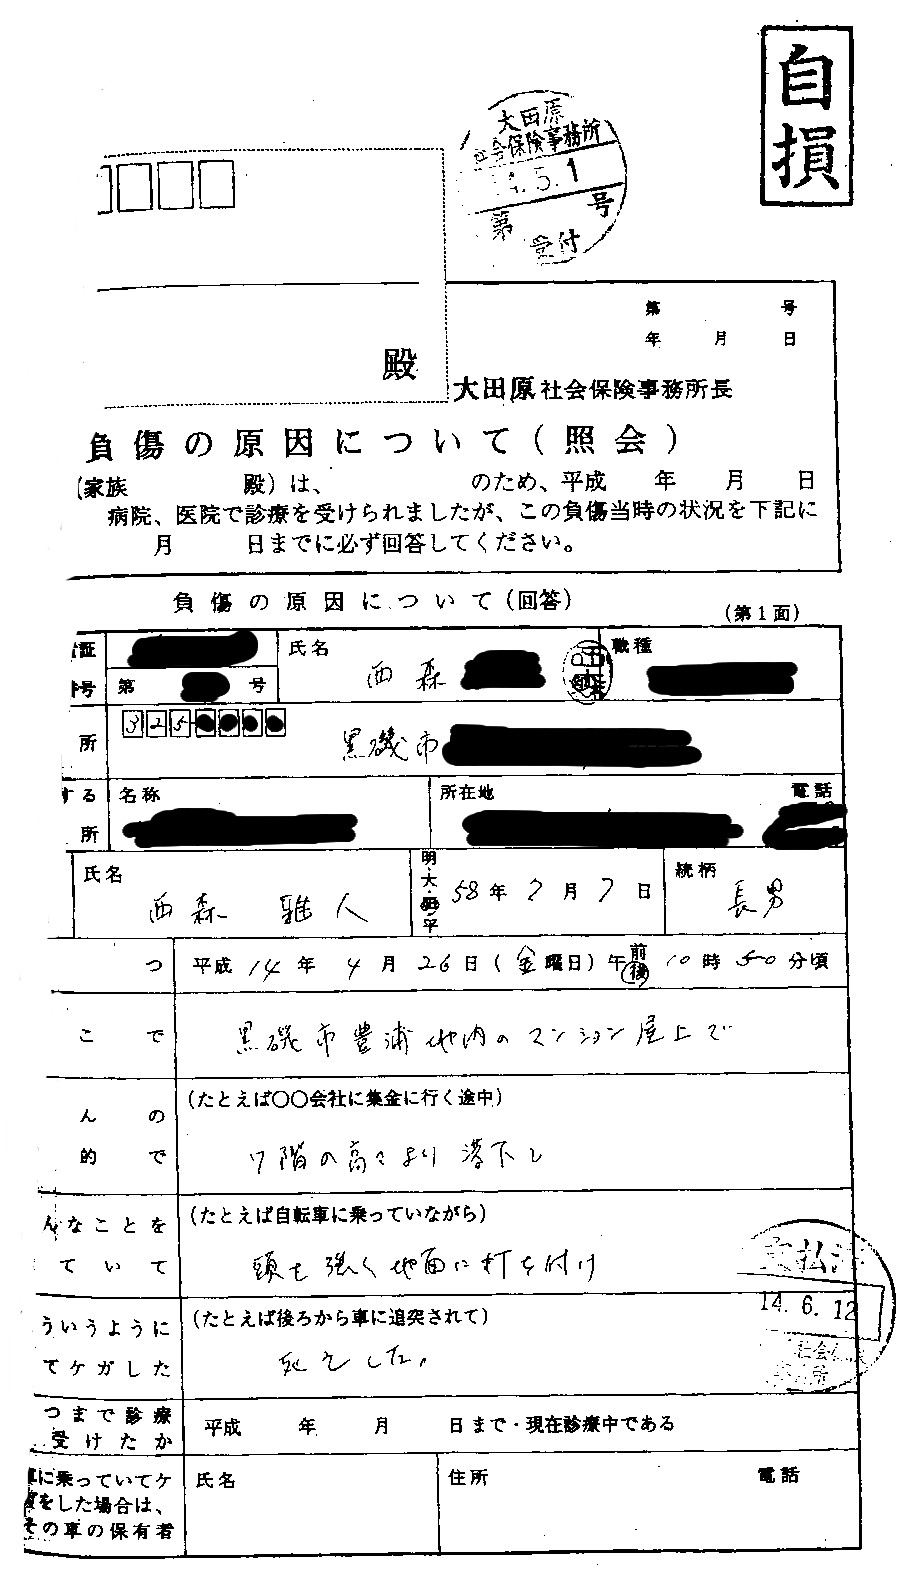 自損
大田原
社会保険事務所
14.5.1
第 号
受付
第 号
年 月 日
殿
大田原社会保険事務所長
負傷の原因について(照会)
(家族 殿)は、 のため、平成 年 月 日
病院、医院で診療を受けられましたが、この負傷当時の状況を下記に
月 日までに必ず回答してください。
負傷の原因について(回答)
(第1面)
証 氏名 西森 職種
番号 第 号
所 325
黒磯市
する 名称 所在地 電話
所
氏名 西森 雅人 明・大・昭・平 58年7月7日 続柄 長男
つ 平成14年4月26日(金曜日)午前後10時50分頃
こで 黒磯市豊浦地内のマンション屋上で
んの (たとえば〇〇会社に集金に行く途中)
的で 7階の高さより落下し
んなことを (たとえば自転車に乗っていながら)
ていて 頭を強く地面に打ち付け
ういうように (たとえば後ろから車に追突されて)
てケガした 死亡した。
支払済
14.6.12
社会
所
つまで診療
受けたか 平成 年 月 日まで・現在診療中である
に乗っていてケ 氏名 住所 電話
をした場合は、
その車の保有者